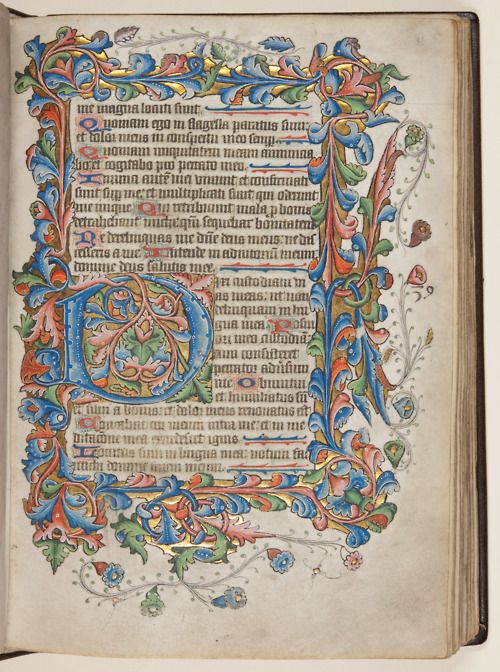 me magna locuti sunt.
Quoniam ego in flagella paratus sum:
et dolor meus in conspectu meo semp.
Quoniam iniquitatem meam annuncia
bo: et cogitabo pro peccato meo.
Inimici aute mei vivunt et confirmati
sunt sup me: et multiplicati sunt qui oderunt
me inique. Qui retribuunt mala p bonis
detrahebant michi: qm sequebar bonitatem
Ne derelinquas me dne deus meus: ne dis
cesseris a me. Intende in adiutorium meum
domine deus salutis mee.
Dixi custodiam
vias meas: ut non
delinquam in lin
gua mea. Posui
ori meo custodiam
cum consisteret
adversum
me. Obmutui
humiliatus sum
et silui a bonis: et dolor meus renovatus est
Concaluit cor meum intra me: et in me
ditacione mea exardescet ignis.
Locutus sum in lingua mea: notum fac
michi domine finem meum.